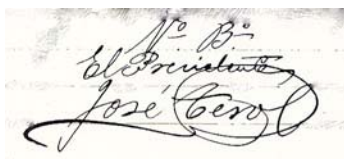 Vº Bº
El Presidente
José Terol